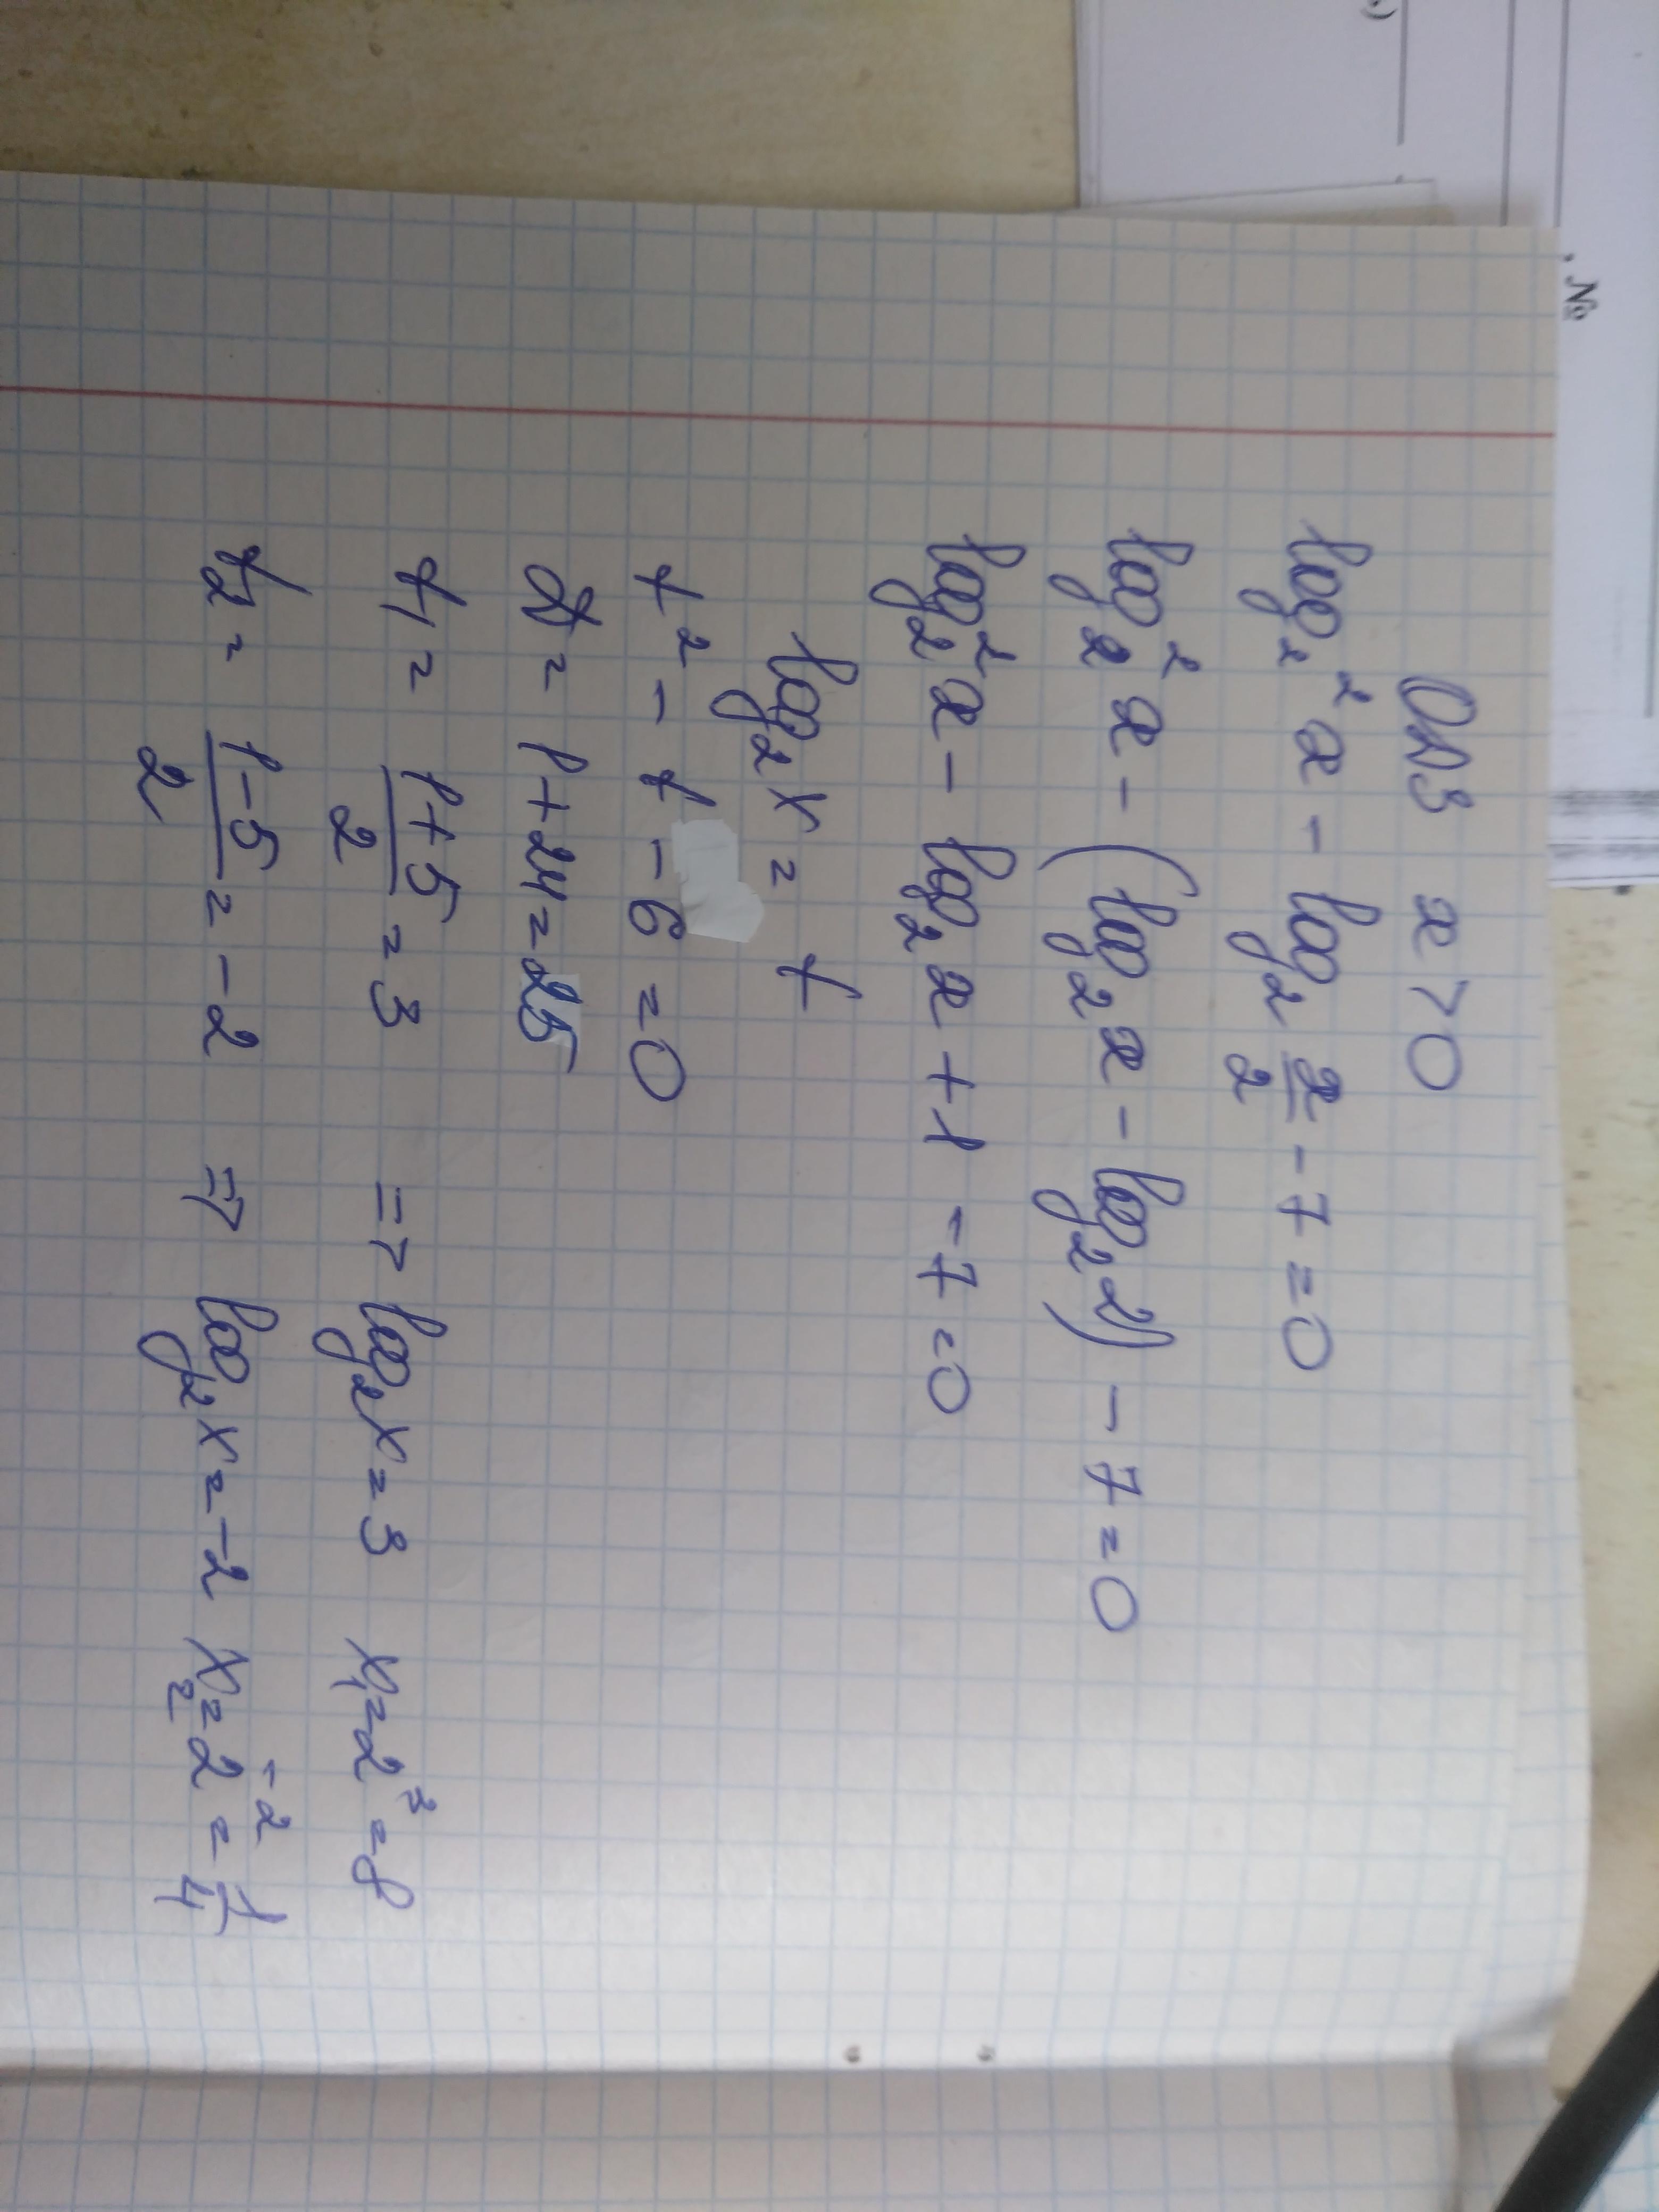 ОДЗ x > 0
log₂² x − log₂ x/2 − 7 = 0
log₂² x − (log₂ x − log₂ 2) − 7 = 0
log₂² x − log₂ x + 1 − 7 = 0
log₂ x = t
t² − t − 6 = 0
D = 1 + 24 = 25
t₁ = (1+5)/2 = 3 => log₂ x = 3 x₁ = 2³ = 8
t₂ = (1−5)/2 = −2 => log₂ x = −2 x₂ = 2⁻² = 1/4
. №